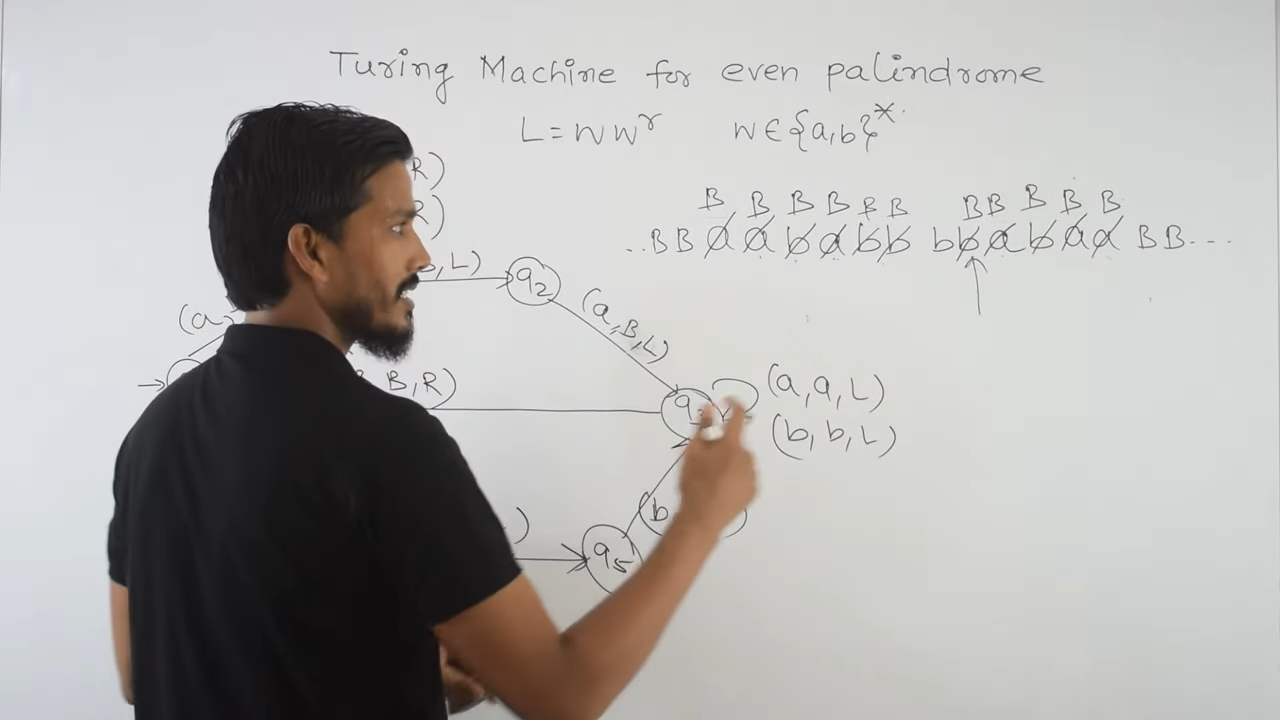 Turing Machine for even palindrome
L = w w^r w ∈ {a,b}*
R)
R)
B B B B B B B B B B B
..BB a a b a b b b b a b a a BB---
,L) q2
(a,B,L)
(a,
B,R)
(a,a,L)
(b,b,L)
(b
)
)
q5